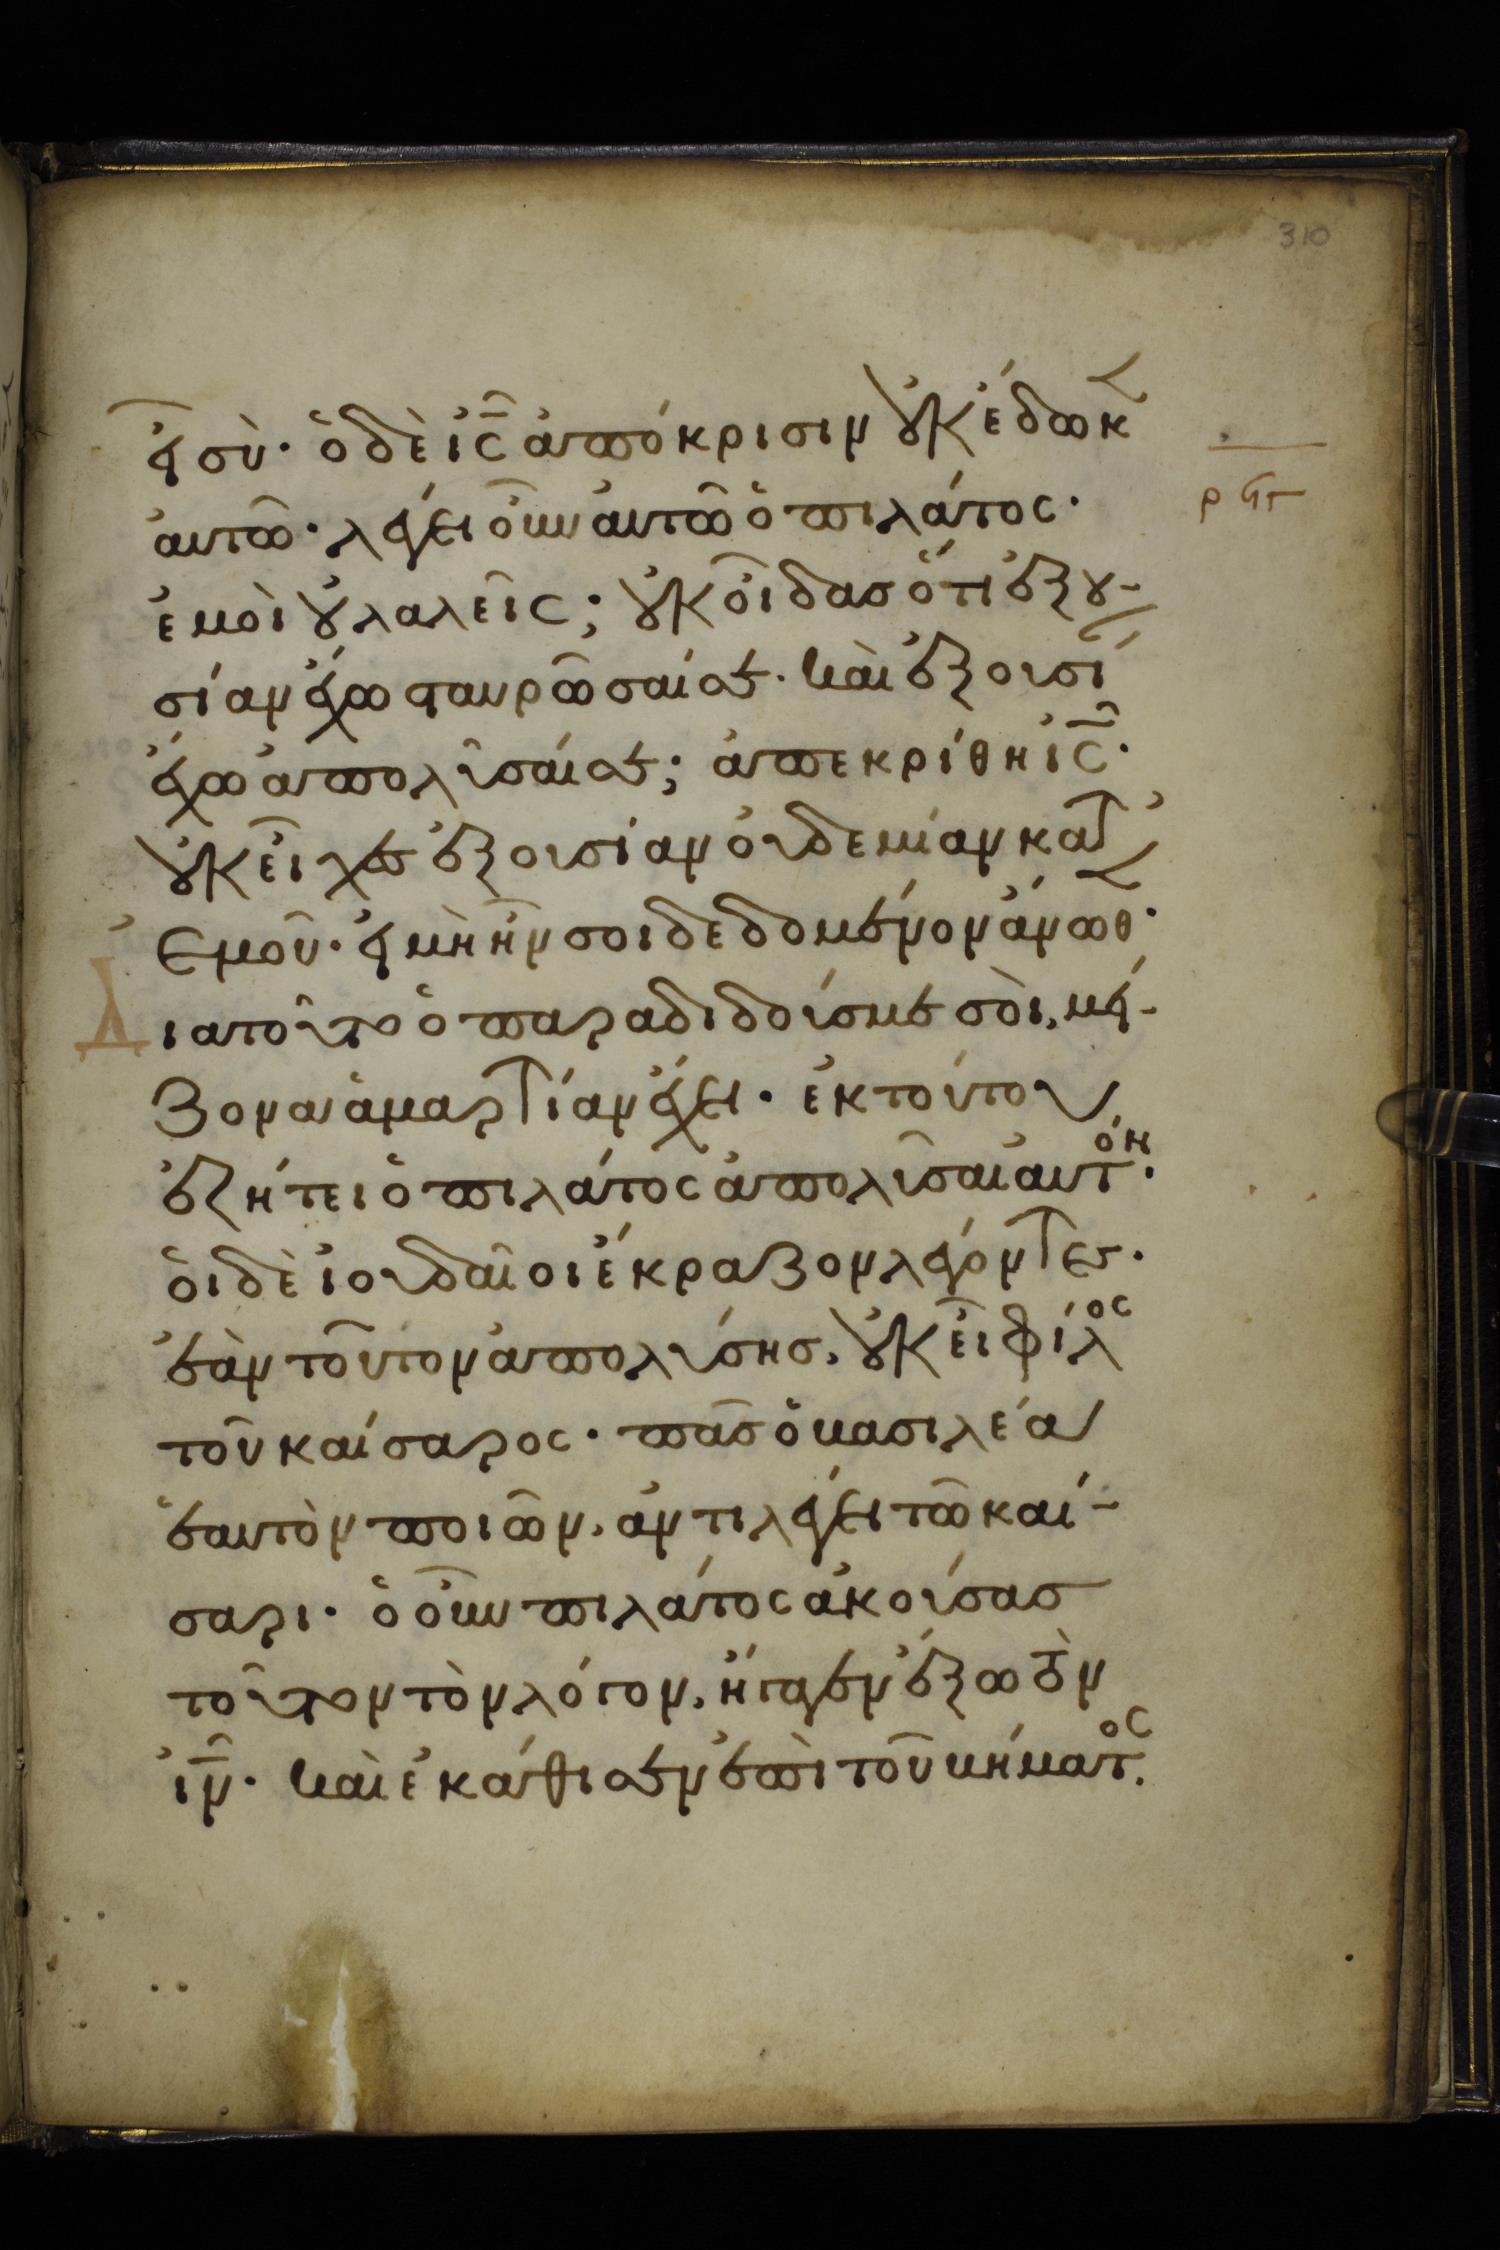 310
εἶ σὺ· ὁ δὲ ἰ̅ς̅ ἀπόκρισιν οὐκ ἔδωκ
αὐτῶ· λέγει οὖν αὐτῶ ὁ πιλάτος·
ἐμοὶ οὐ λαλεῖς; οὐκ οἶδασ ὅτι ἐξου-
σίαν ἔχω σταυρῶσαί σε· καὶ ἐξουσί
ἔχω ἀπολῦσαί σε; ἀπεκρίθη ἰ̅ς̅·
ρ̅ϟ̅ϛ̅
οὐκ εἶχες ἐξουσίαν οὐδεμίαν κατ
ἐμοῦ· εἰ μὴ ἦν σοι δεδομένον ἄνωθ·
Διατοῦτο ὁ παραδιδούσ με σοὶ, μεί-
ζονα ἁμαρτίαν ἔχει· ἐκ τούτου
ἐζήτει ὁ πιλάτος ἀπολῦσαι αὐτόν·
ὁι δὲ ἰουδαῖοι ἔκραζον λέγοντες·
ἐὰν τοῦτον ἀπολύσησ, οὐκ εἶ φίλος
τοῦ καίσαρος· πᾶσ ὁ βασιλέα
ἑαυτὸν ποιῶν, ἀντιλέγει τῶ καί-
σαρι· ὁ οὖν πιλάτος ἀκούσασ
τοῦτον τὸν λόγον, ἤγαγεν ἔξω τὸν
ἰ̅ν̅· καὶ ἐκάθισεν ἐπὶ τοῦ βήματος.